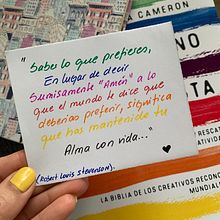 "Saber lo que prefieres,
En lugar de decir
Sumisamente "Amén" a lo
que el mundo te dice que
deberías preferir, significa
que has mantenido tu
Alma con vida..."
(Robert Louis Stevenson).
A CAMERON
NO
TA
RESCATA
LA BIBLIA DE LOS CREATIVOS RECONO
MUNDIALME